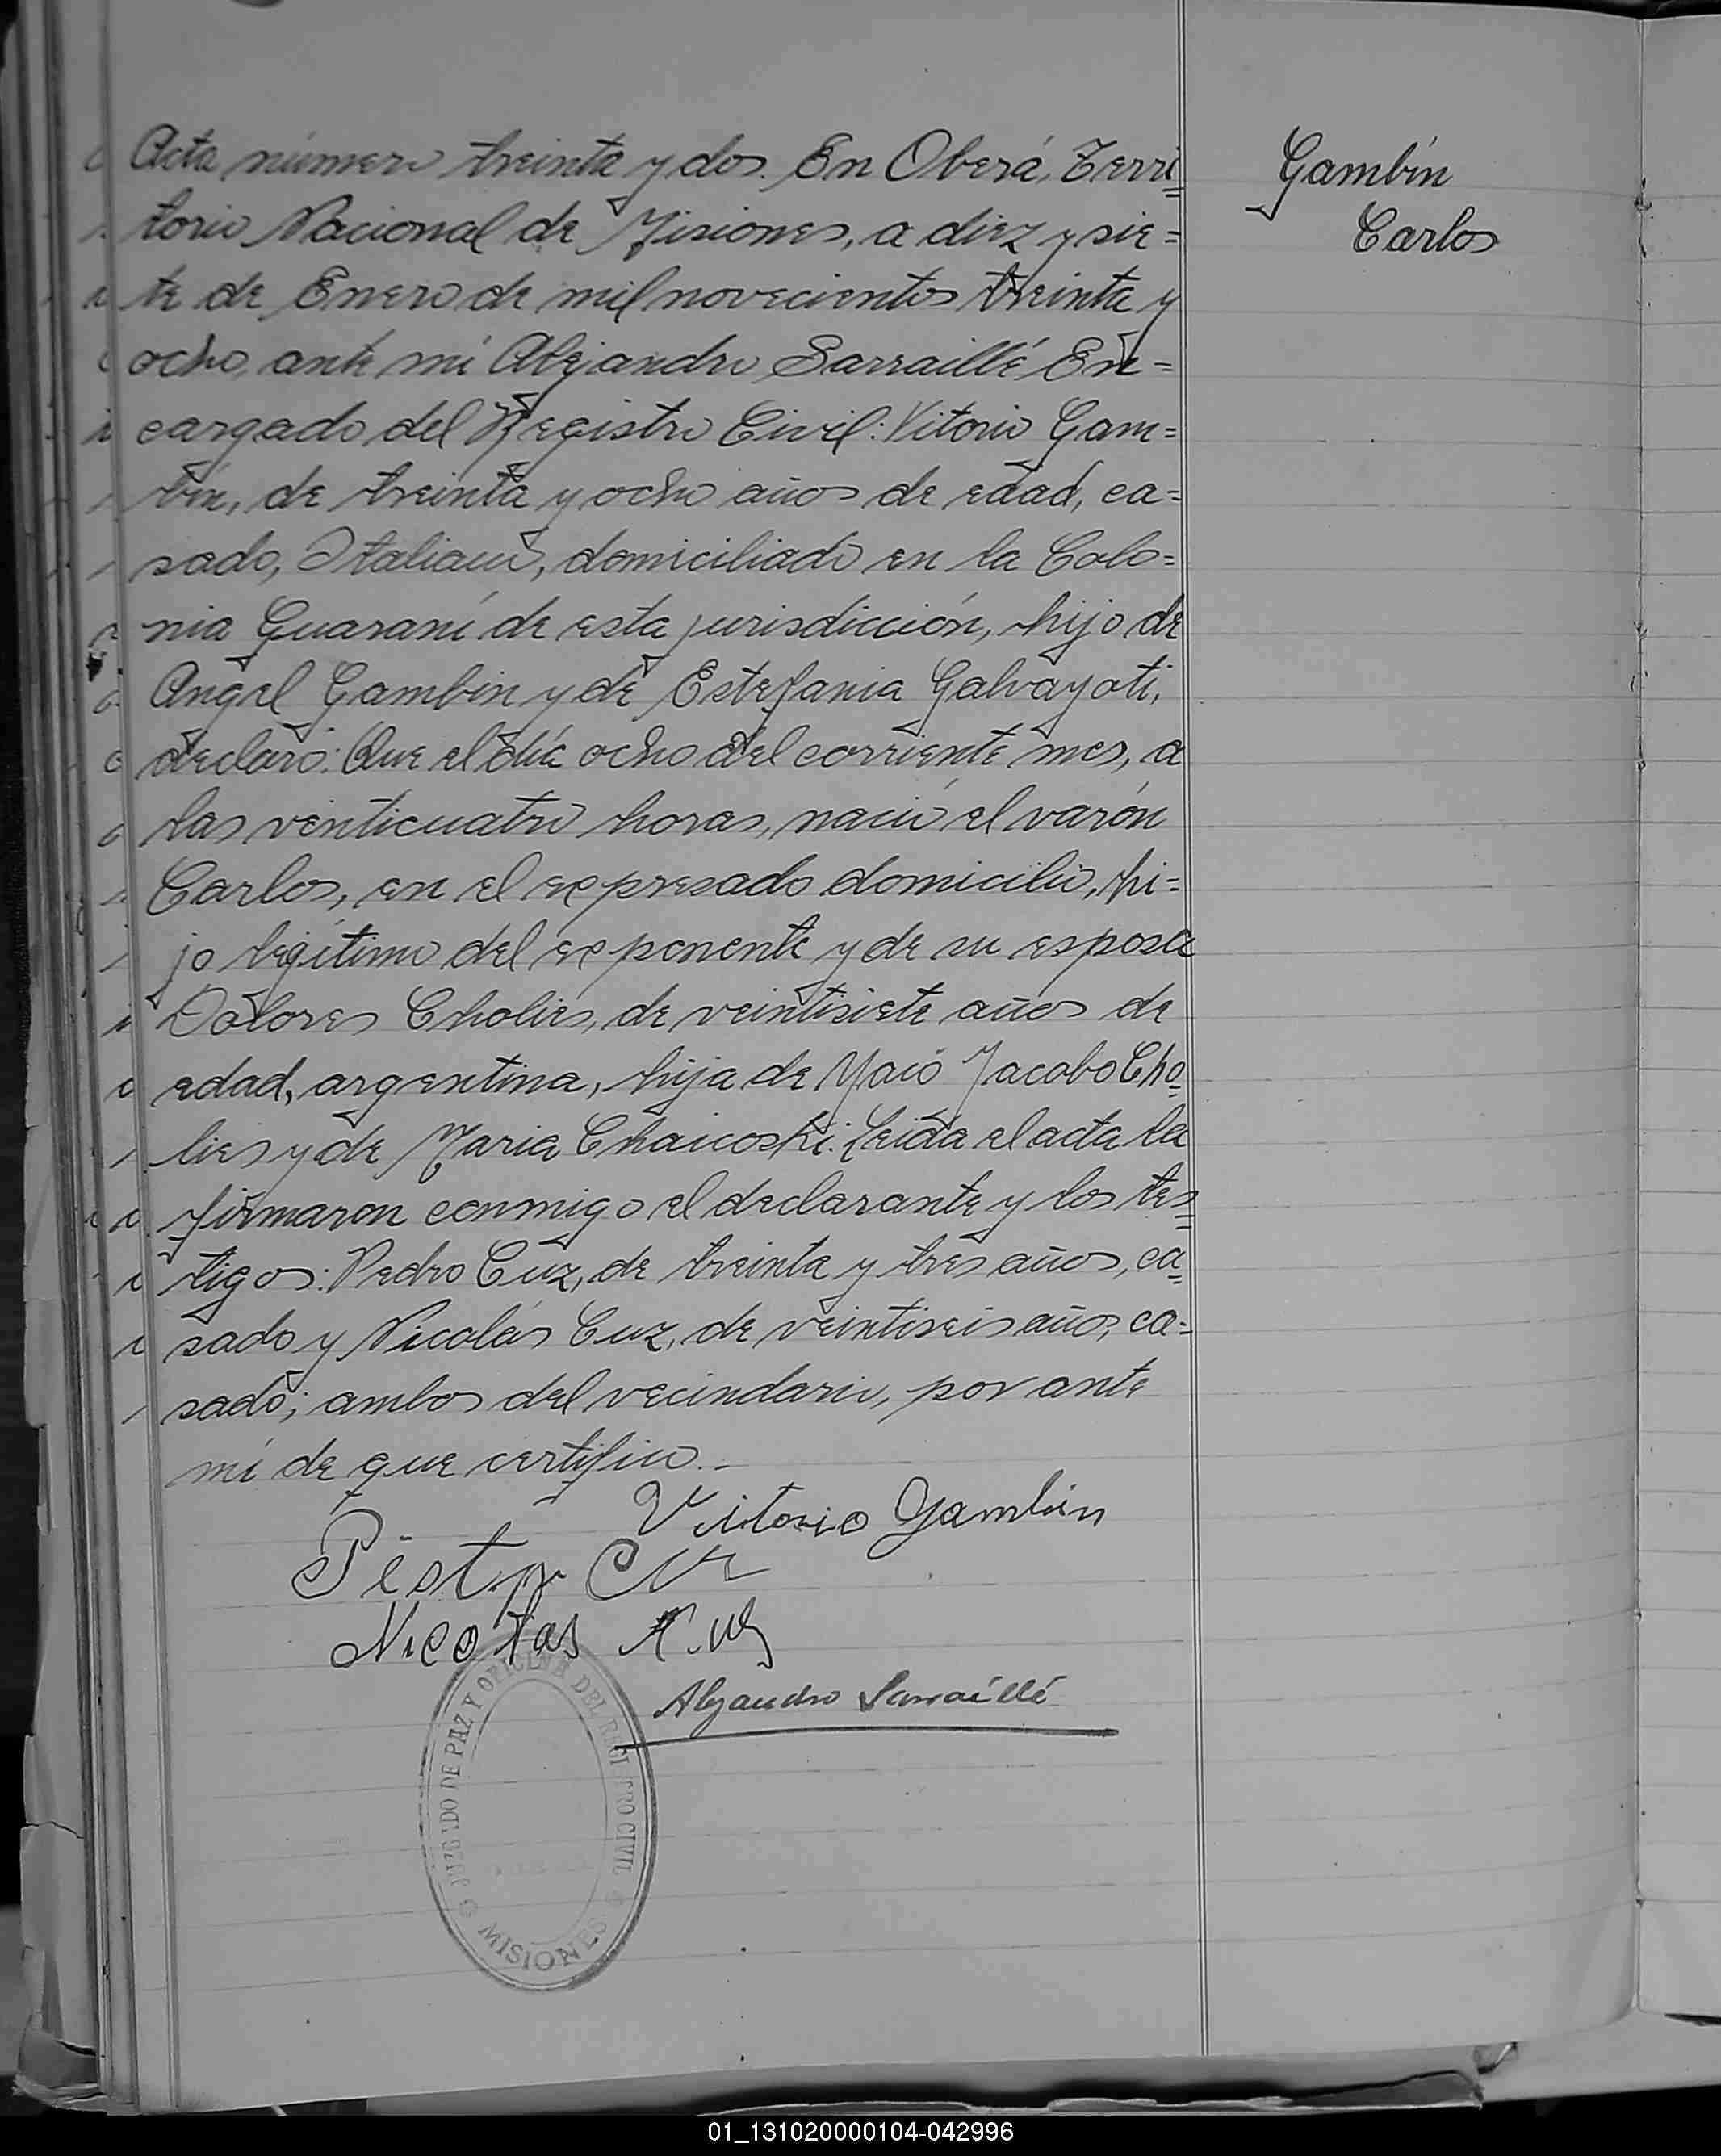 Acta número treinta y dos. En Oberá, Terri=
torio Nacional de Misiones, a diez y sie=
te de Enero de mil novecientos treinta y
ocho, ante mí Alejandro Sarraillé En=
cargado del Registro Civil: Vitorio Gam=
bin, de treinta y ocho años de edad, ca=
sado, Italiano, domiciliado en la Colo=
nia Guaraní de esta jurisdicción, hijo de
Angel Gambin y de Estefania Galvayoti,
declaró: Que el día ocho del corriente mes, a
las venticuatro horas, nació el varón
Carlos, en el expresado domicilio, hi=
jo legítimo del exponente y de su esposa
Dolores Cholies, de veintisiete años de
edad, argentina, hija de Jacobo Cho=
lies y de Maria Chaicoski. Leída el acta la
firmaron conmigo el declarante y los tes=
tigos: Pedro Cuz, de treinta y tres años, ca=
sado y Nicolás Cuz, de veintiseis años, ca=
sado; ambos del vecindario, por ante
mí de que certifico.-
Gambín
Carlos
Vittorio Gambin
Nicolas
Alejandro Sarraillé
JUZGADO DE PAZ Y OFICINA DEL REGISTRO CIVIL
MISIONES
01_131020000104-042996